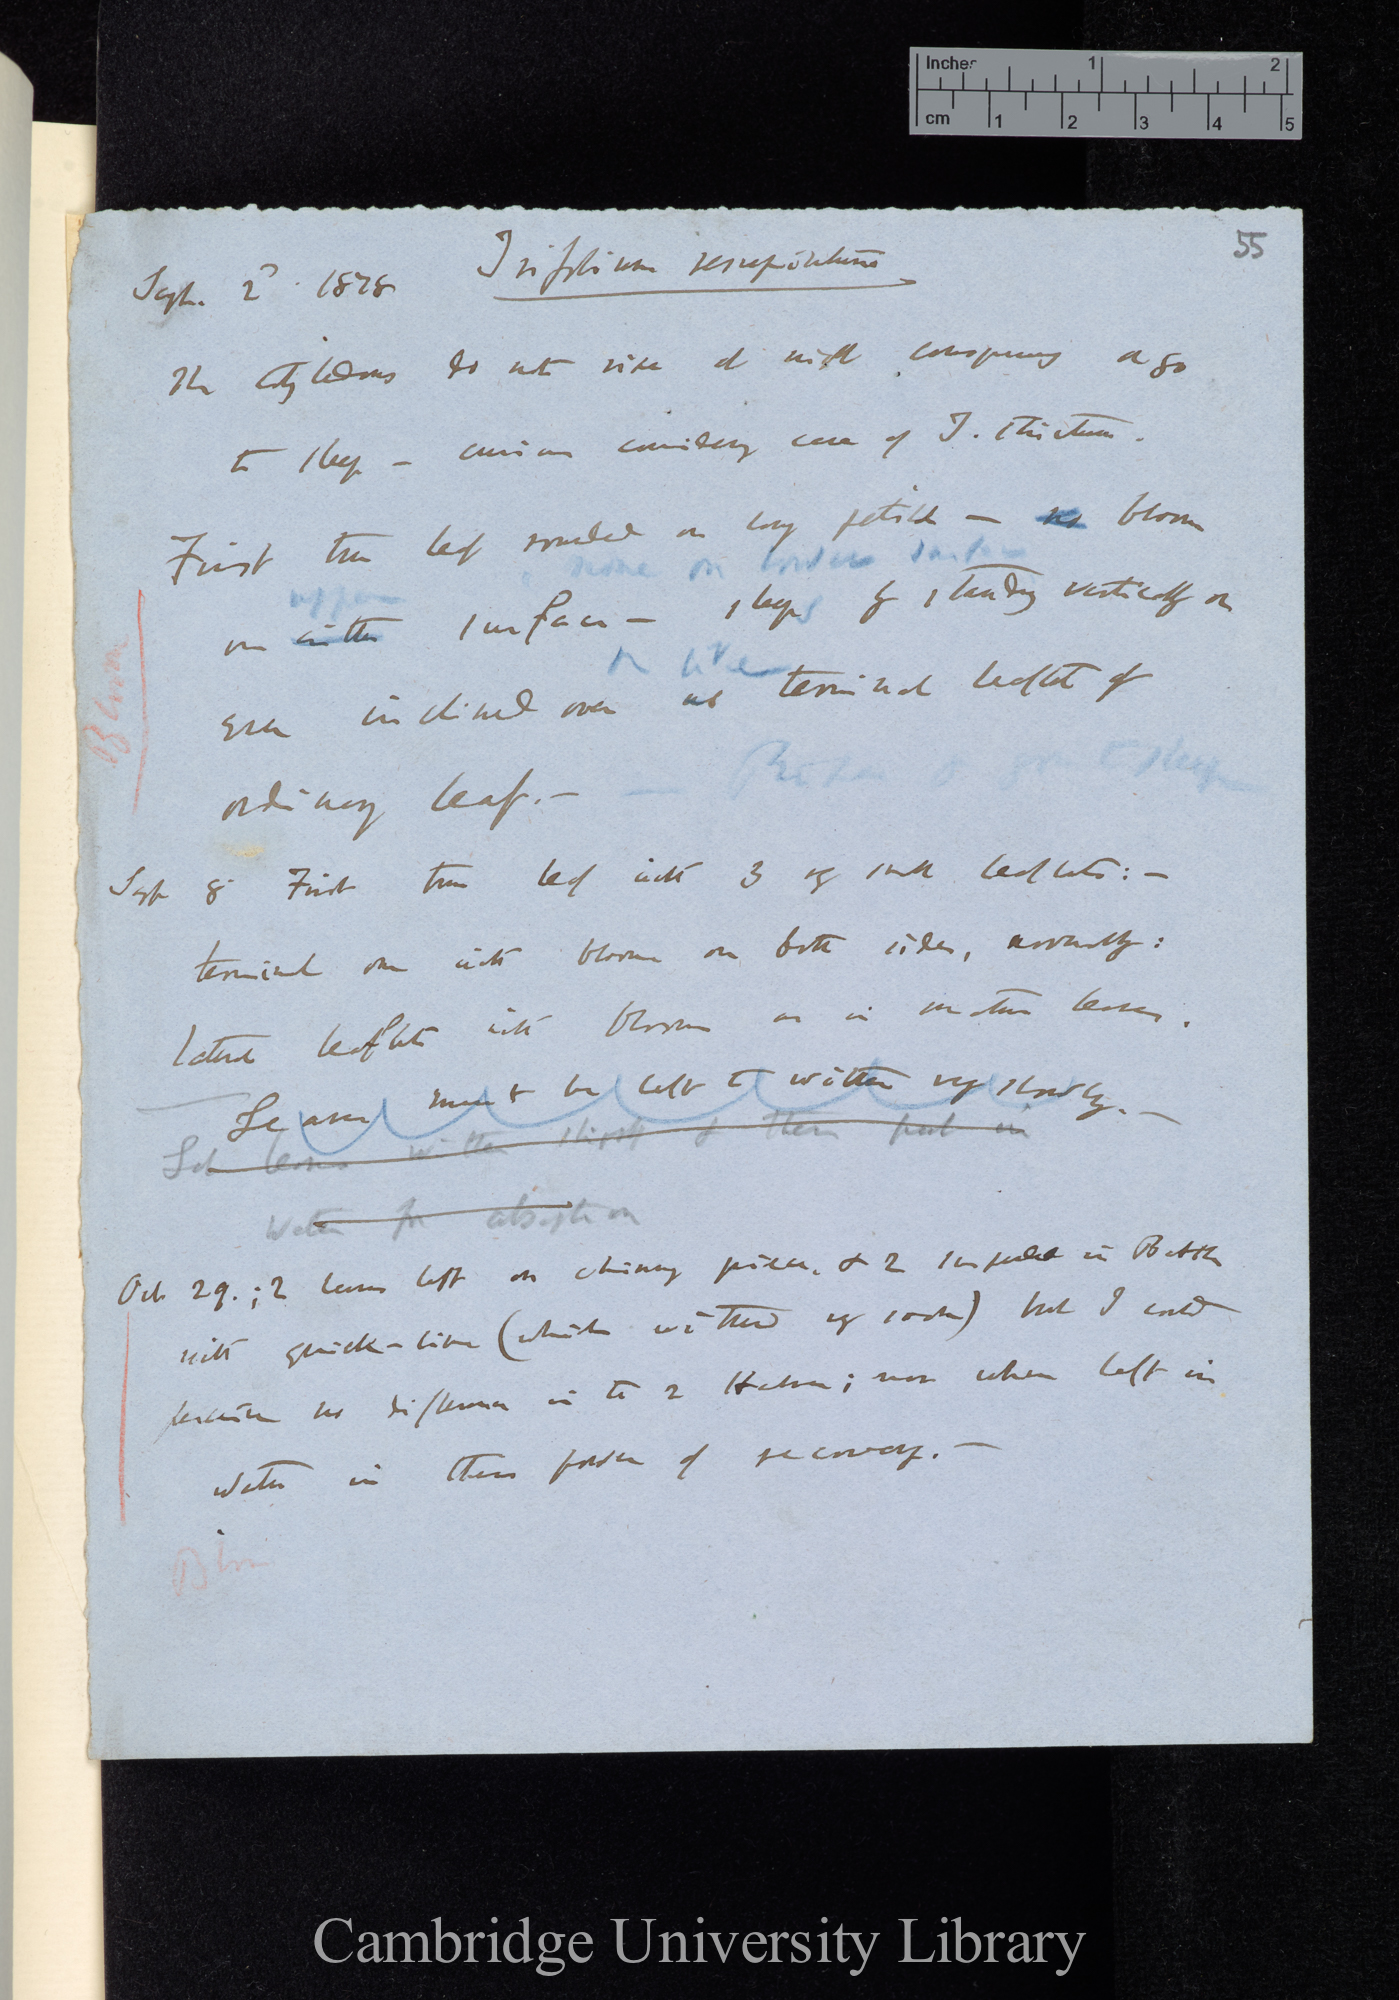 Inches 1 2
cm 1 2 3 4 5
55
Sept. 2d. 1878 Trifolium resupinatum
The Cotyledons do not rise at night conspicuously or go
to sleep — curious considering case of T. strictum.
First true leaf rounded on long petiole — no bloom
none on lower surface
upper
on either surface — sleeps by standing vertically or
or like
even inclined over as terminal leaflet of
ordinary leaf. —
— Petiole to sleep
Bloom
Sept 8 First true leaf with 3 leaflets: —
terminal one with bloom on both sides, normally:
lateral leaflets with bloom as in mature leaves.
Leaves must be left to wither very slowly. —
Let leaves wither slightly & then put in
water for absorption
Oct 29.; 2 leaves left on chimney piece, & 2 suspended in Bottle
with quick-lime (which withered very soon) but I could
perceive no difference in the 2 ; nor when left in
water in their power of recovery. —
Bloom
Cambridge University Library